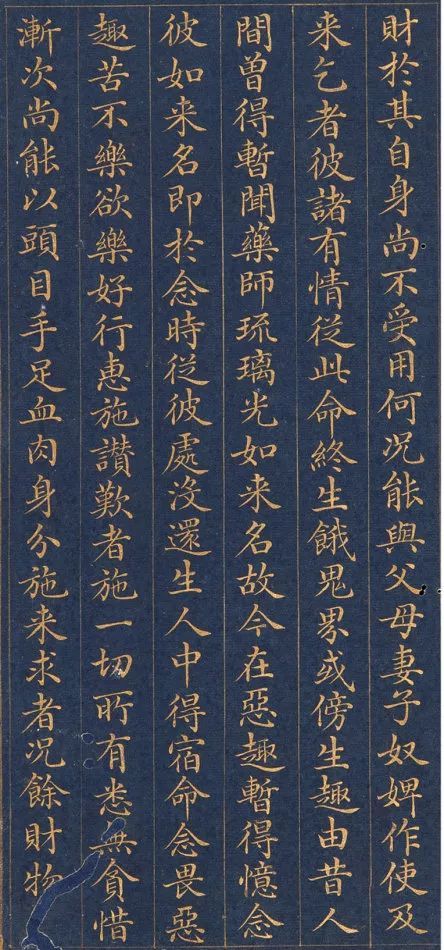 財於其自身尚不受用何況能與父母妻子奴婢作使及
来乞者彼諸有情從此命終生餓鬼界或傍生趣由昔人
間曽得暫聞藥師琉璃光如来名故今在惡趣暫得憶念
彼如来名即於念時從彼處没還生人中得宿命念畏惡
趣苦不樂欲樂好行惠施讃歎者施一切所有悉無貪惜
漸次尚能以頭目手足血肉身分施来求者況餘財物